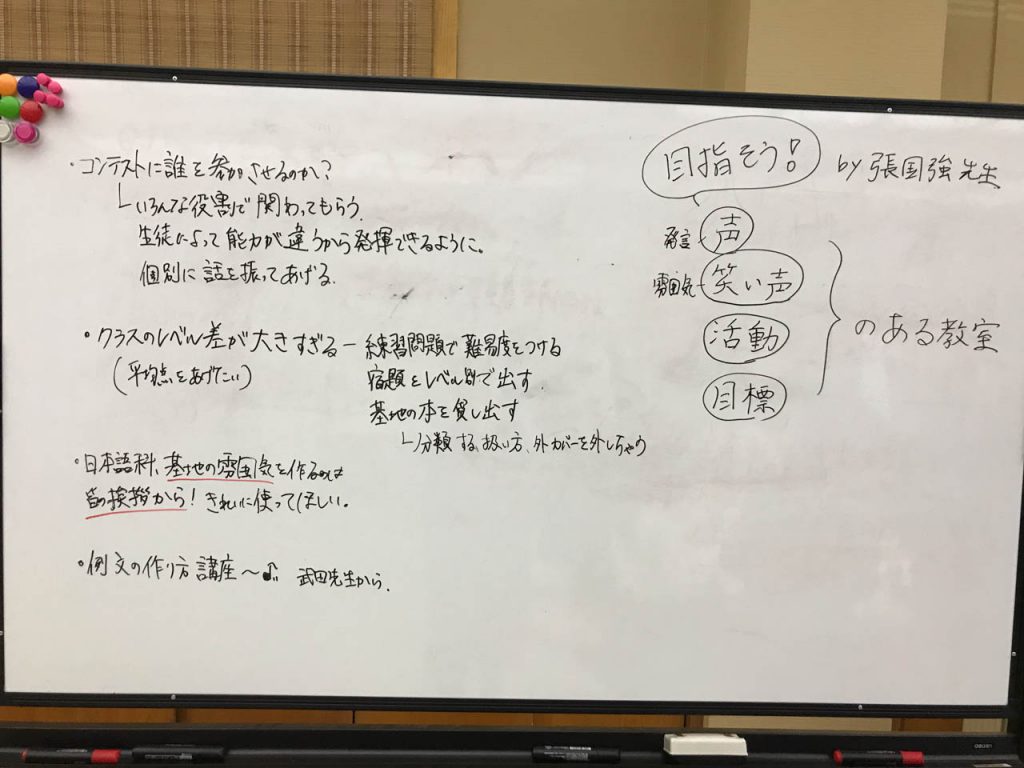 ・コンテストに誰を参加させるのか?
└いろんな役割で関わってもらう.
生徒によって能力が違うから発揮できるように。
個別に話を振ってあげる.
・クラスのレベル差が大きすぎる ー 練習問題で難易度をつける
(平均点をあげたい)
宿題をレベル別で出す.
基地の本を貸し出す
└分類する、扱い方、外カバーを外しちゃう
・日本語科、基地の雰囲気を作るのは
皆の挨拶から! きれいに使ってほしい。
・例文の作り方講座〜♪ 武田先生から.
目指そう! by 張国強先生
発言 - 声
雰囲気 - 笑い声
活動
目標
のある教室
deli